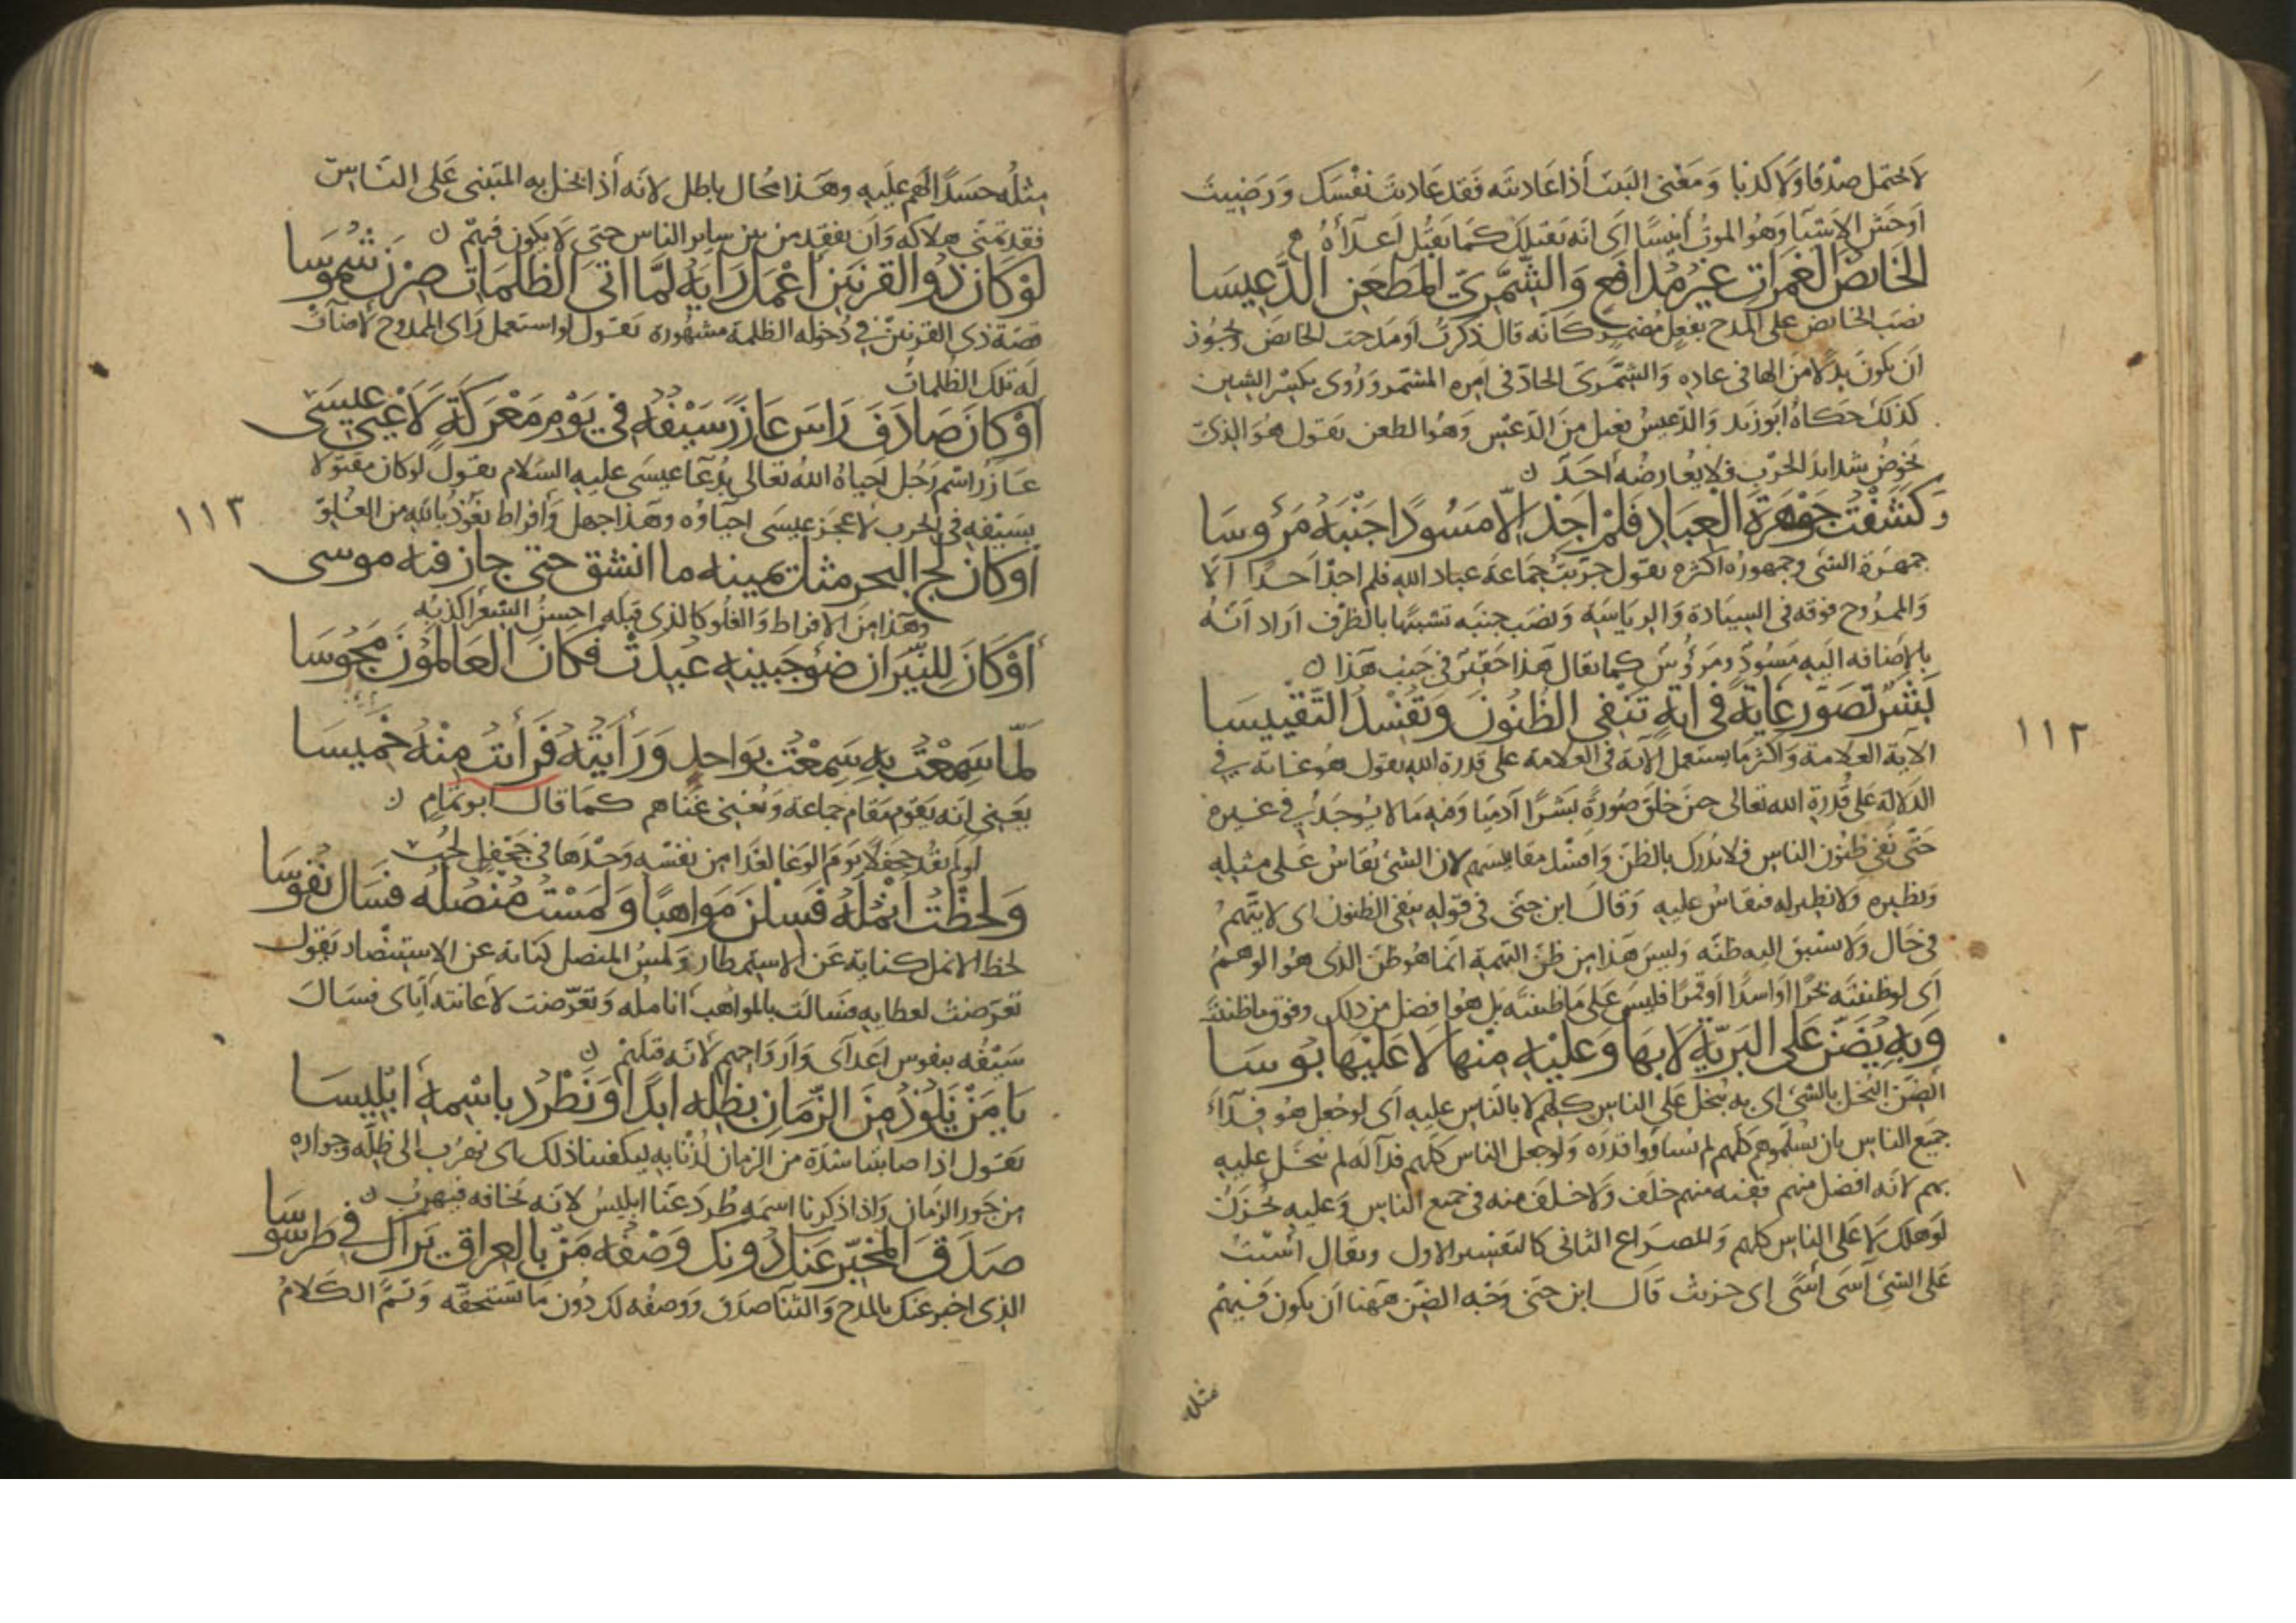 لا تحتمل صدقا ولا كذبا ومعنى البيت أذا عاديته فقد عاديت نفسك ورضيت
اوحش الاشيا وهو الموت أنيسًا اى انه يقتلك كما يقتل اعدآه
الخايضَ الغمرات غيرَ مُدافع وَالشَّمَّرىَّ المطعن الدِّعيسا
نصب الخايض على المدح بفعل مضمر كانه قال ذكرت أو مدحت الخايض ويجوز
ان يكون بدلا من الها فى عاده والشمرى الجادّ فى امره المشمر وروى بكسر الشين
كذلك حكاه ابو زيد والدعيس فعيل من الدعس وهو الطعن يقول هو الذى
يخوض شدايد الحرب فلا يعارضه احد ن
وكشفت جمهرة العباد فلم اجد الّا مسُودًا جنبه مرؤوسا
جمهرة الشى وجمهوره اكثره يقول جربت جماعة عباد الله فلم اجد احدا الا
والممدوح فوقه فى السيادة والرياسة ونصب جنبه تشبيها بالظرف اراد انه
بالإضافه اليه مسود ومرؤس كما يقال هذا حقير فى جنب هذا ن
بشر تصوّر غايةً فى اية تنفى الظنون وتفسد التقييسا
الآية العلامة واكثر ما يستعمل الآية فى العلامة على قدرة الله يقول هو غاية فى
الدلالة على قدرة الله تعالى حين خلق صورة بشرًا آدميا وفيه ما لا يوجد فى غيره
حتى نفى ظنون الناس فلا يدرك بالظن وافسد مقايسهم لان الشى يقاس على مثله
ونظيره ولا نظير له فيقاس عليه وقال ابن جنى فى قوله ينفى الظنون اى لا يتهم
فى حال ولا سبق اليه ظنه وليس هذا من ظن التهمة انما هو ظن الذى هو الوهم
اى لو ظننته بحرًا او اسدًا او قمرًا فليس على ما ظننته بل هو افضل من ذلك وفوق ما ظننته
وبه يضن على البرية لا بها وعليه منها لا عليها يوسا
الضن البخل بالشى اى به يبخل على الناس كلهم لا بالناس عليه اى لو جعل هو فدآء
جميع الناس بان يسلموا هم كلهم لم يساووا قدره ولو جعل الناس كلهم فدآ له لم يبخل عليه
بهم لانه افضل منهم ففيه منهم خلف ولا خلف منه فى جميع الناس وعليه يحزن
لو هلك لا على الناس كلهم والمصراع الثانى كالتفسير الاول ويقال أسيت
على الشئ آسى أسًى اى حزنت قال ابن جنى وجه الضن ههنا ان يكون فيهم
مثله
١١٢
مثله حسدًا لهم عليه وهذا محال باطل لانه أذا بخل به المتنبى على الناس
فقد تمنى هلاكه وان يفقد من بين ساير الناس حتى لا يكون فيهم ن
لو كان ذو القرنين أعمل رايه لمّا اتى الظلمات صرن شموسا
قصة ذى القرنين فى دخوله الظلمة مشهورة يقول لو استعمل راى الممدوح لأضآت
له تلك الظلمات
أو كان صادف راس عازر سيفه فى يوم معركةٍ لأعيى عيسى
عازر اسم رجل احياه الله تعالى بدعآ عيسى عليه السلام يقول لو كان مقتولا
بسيفه فى الحرب لأعجز عيسى احياؤه وهذا جهل وأفراط نعوذ بالله من الغلو
١١٣
أو كان لج البحر مثل يمينه ما انشق حتى جاز فيه موسى
وهذا من الافراط والغلو كالذى قبله احسن الشعر اكذبه
أو كان للنيران ضوء جبينه عبدت فكان العالمون مجوسا
لمّا سمعت به سمعت بواحد ورأيته فرأيت منه خميسا
يعنى انه يقوم مقام جماعة ويغنى غناهم كما قال ابو تمام ن
لو لم يقد جحفلًا يوم الوغا لغدا من نفسه وحدها فى جحفل لجب
ولحظت انمله فسلن مواهبًا ولمست منصله فسال نفوسا
لحظ الانمل كناية عن الاستمطار ولمس المنصل كناية عن الاستنصار يقول
تعرضت لعطايه فسالت بالمواهب انامله وتعرّضت لأعانته أياى فسال
سيفه بنفوس اعداى وارواحهم لانه قتلهم ن
يا من نلوذ من الزمان بظله ابدًا ونطرد باسمه ابليسا
يقول اذا صابتنا شدة من الزمان لذنا به ليكفينا ذلك اى نهرب الى ظله وجواره
من جور الزمان واذا ذكرنا اسمه طرد عنا ابليس لانه يخافه فيهرب ن
صدق المخبّر عنك دونك وصفه من بالعراق يراك فى طرسوسا
الذى اخبر عنك بالمدح والثنا صدق ووصفه لك دون ما تستحقه وتمّ الكلام